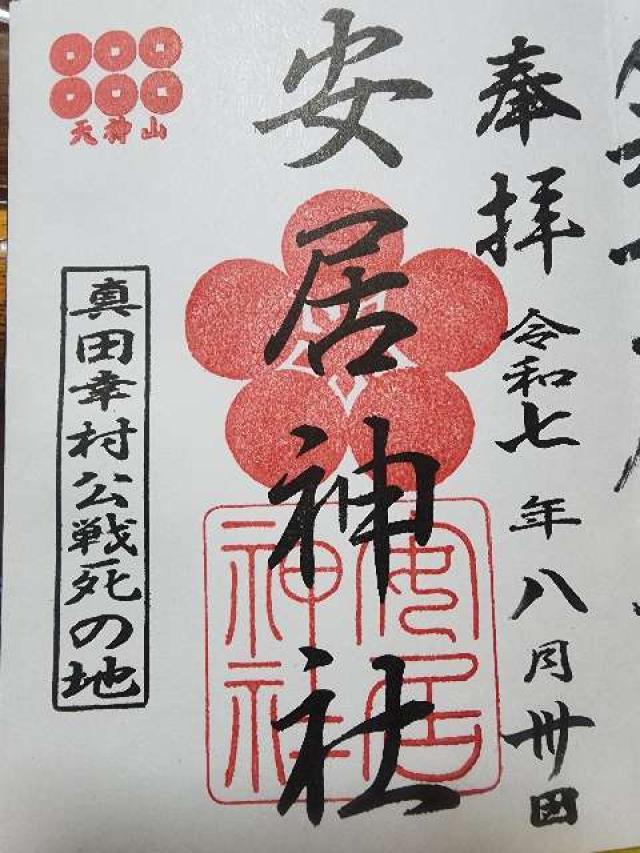 奉拝
令和七年八月卅日
安居神社
安居神社
天神山
真田幸村公戦死の地